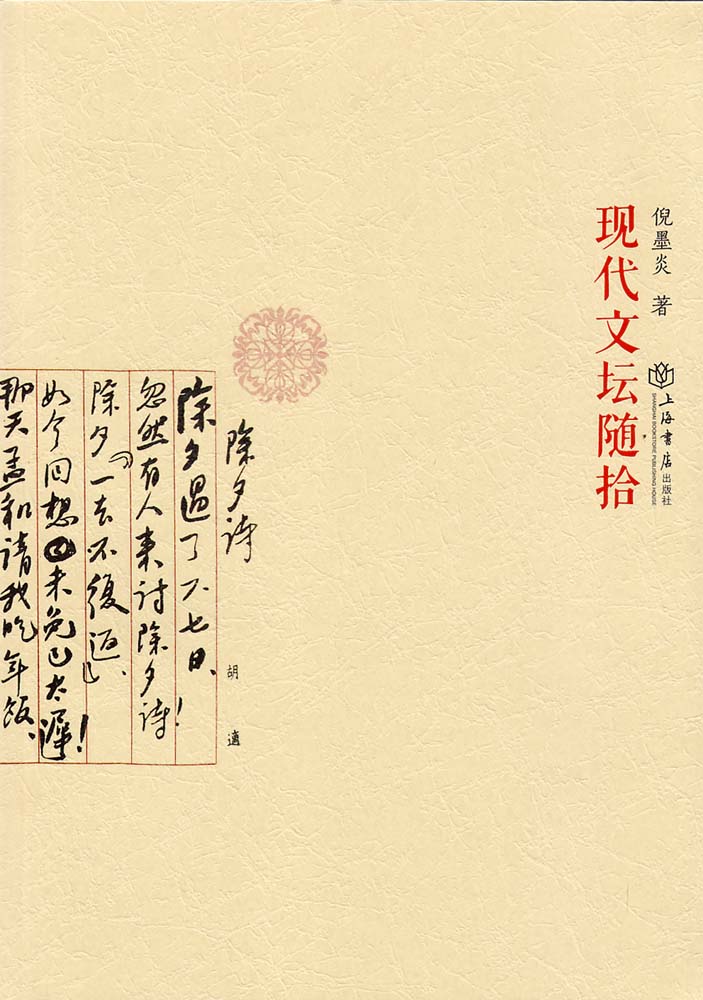 倪墨炎 著
现代文坛随拾
上海书店出版社
SHANGHAI BOOKSTORE PUBLISHING HOUSE
除夕诗
胡適
除夕過了六七日、
忽然有人来讨除夕诗!
除夕「一去不復返」、
如今回想未免已太遲!
那天孟和请我吃年饭、